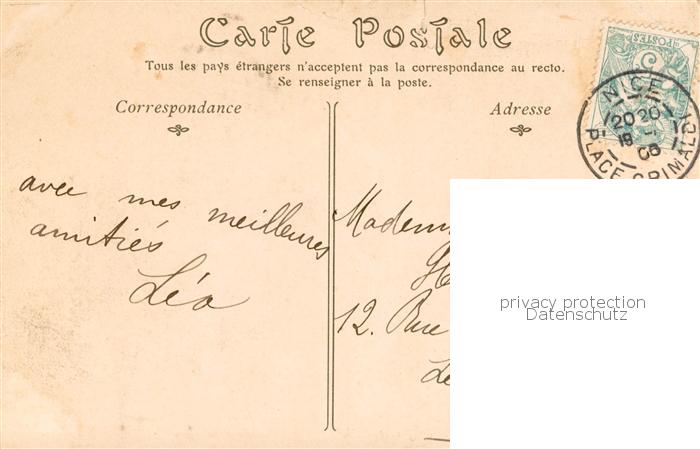 Carte Postale
Tous les pays étrangers n'acceptent pas la correspondance au recto.
Se renseigner à la poste.
Correspondance
Adresse
POSTES
5
NICE
20 20
19 - 1
06
PLACE GRIMALDI
avec mes meilleures
amitiés
Léa
Madem
12. Rue
privacy protection
Datenschutz